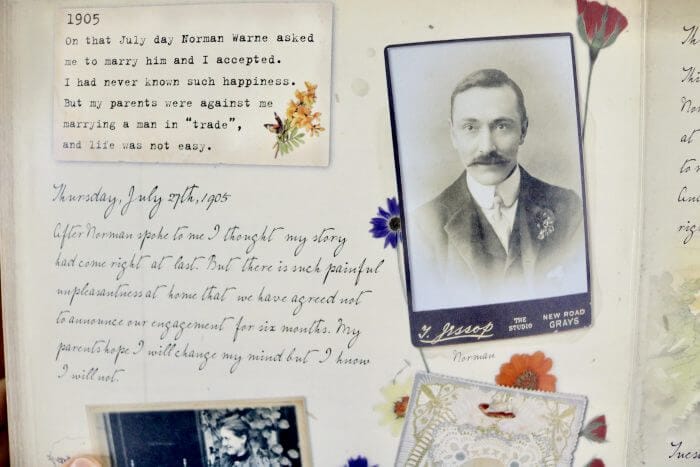 1905
On that July day Norman Warne asked
me to marry him and I accepted.
I had never known such happiness.
But my parents were against me
marrying a man in “trade”,
and life was not easy.
Thursday, July 27th, 1905
After Norman spoke to me I thought my story
had come right at last. But there is such painful
unpleasantness at home that we have agreed not
to announce our engagement for six months. My
parents hope I will change my mind but I know
I will not.
T. Jessop
THE
STUDIO
NEW ROAD
GRAYS
Norman
Th
Thi
Nor
at
to
righ
Tues